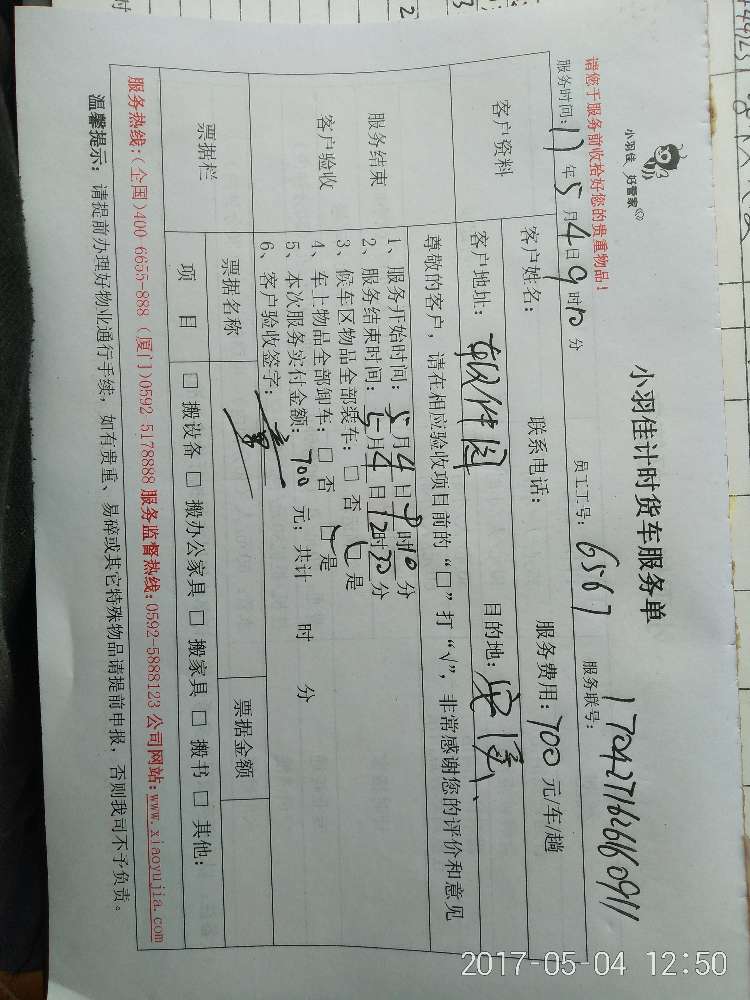 小羽佳 好管家
小羽佳计时货车服务单
请您于服务前收拾好您的贵重物品!
员工工号: 6567 服务联号:
服务时间: 17 年 5 月 4 日 9 时 10 分
客户资料
客户姓名: 联系电话: 服务费用: 700 元/车/趟
客户地址: 软件园 目的地:
服务结束
客户验收
尊敬的客户, 请在相应验收项目前的“□”打“√”, 非常感谢您的评价和意见
1、服务开始时间: 5 月 4 日 9 时 10 分
2、服务结束时间: 5 月 4 日 12 时 30 分
3、候车区物品全部装车: □ 否 □ 是
4、车上物品全部卸车: □ 否 □ 是
5、本次服务实付金额: 700 元; 共计 时 分
6、客户验收签字:
票据栏
票据名称 票据金额
项 目 □ 搬设备 □ 搬办公家具 □ 搬家具 □ 搬书 □ 其他:
服务热线:(全国)400-6655-888 (厦门)0592-5178888 服务监督热线:0592-5888123 公司网站:www.xiaoyujia.com
温馨提示: 请提前办理好物业通行手续, 如有贵重、易碎或其它特殊物品请提前申报, 否则我司不予负责。
2017-05-04 12:50